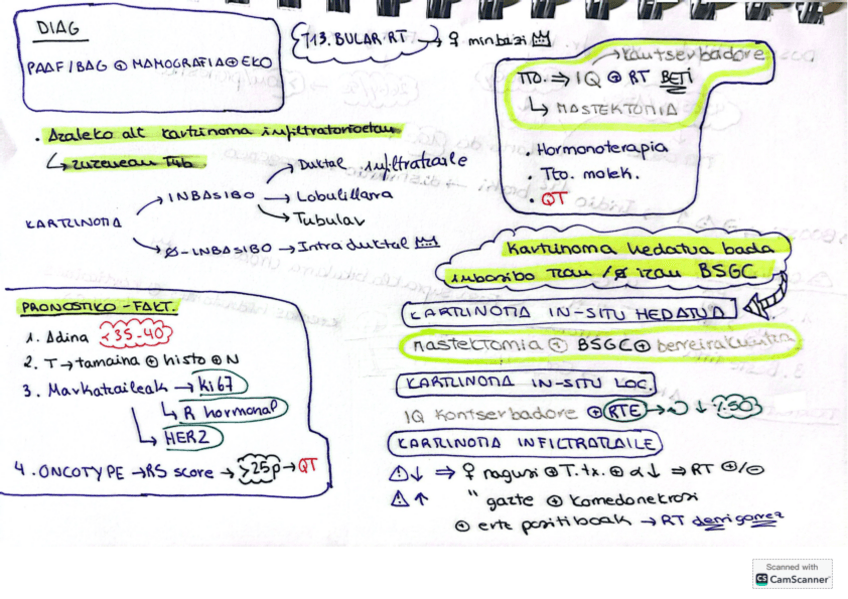 DIAG
PAAF/BAG ⊕ MAMOGRAFIA ⊕ EKO
713. BULAR RT → ♀ minbizi
→ Kontserbadore
TTO. ⇒ IQ ⊕ RT BETI
↳ MASTEKTOMIA
. Hormonoterapia
. Tto. molek.
. QT
. Azaleko alt kartzinoma infiltratorioetan
↳ zuzenean Tub
KARTZINOMA
→ INBASIBO → Duktal infiltratzaile
→ Lobulillarra
→ Tubular
→ Ø-INBASIBO → Intraduktal
Kartzinoma hedatua bada
inbasibo izan /Ø izan BSGC
PRONOSTIKO-FAKT.
1. Adina <35-40
2. T → tamaina ⊕ histo ⊕ N
3. Markatzaileak → Ki67
↳ R hormonal
↳ HER2
4. ONCOTYPE → RS score → >25p → QT
KARTZINOMA IN-SITU HEDATUA
Mastektomia ⊕ BSGC ⊕ berreraikuntza
KARTZINOMA IN-SITU LOC.
IQ Kontserbadore ⊕ RTE → ↓ %50
KARTZINOMA INFILTRATZAILE
⚠↓ ⇒ ♀ nagusi ⊕ T. tx. ⊕ α ↓ ⇒ RT ⊕/⊖
⚠↑ " gazte ⊕ komedonekrosi
⊕ ertz positiboak → RT derrigorrez
Scanned with
CS CamScanner